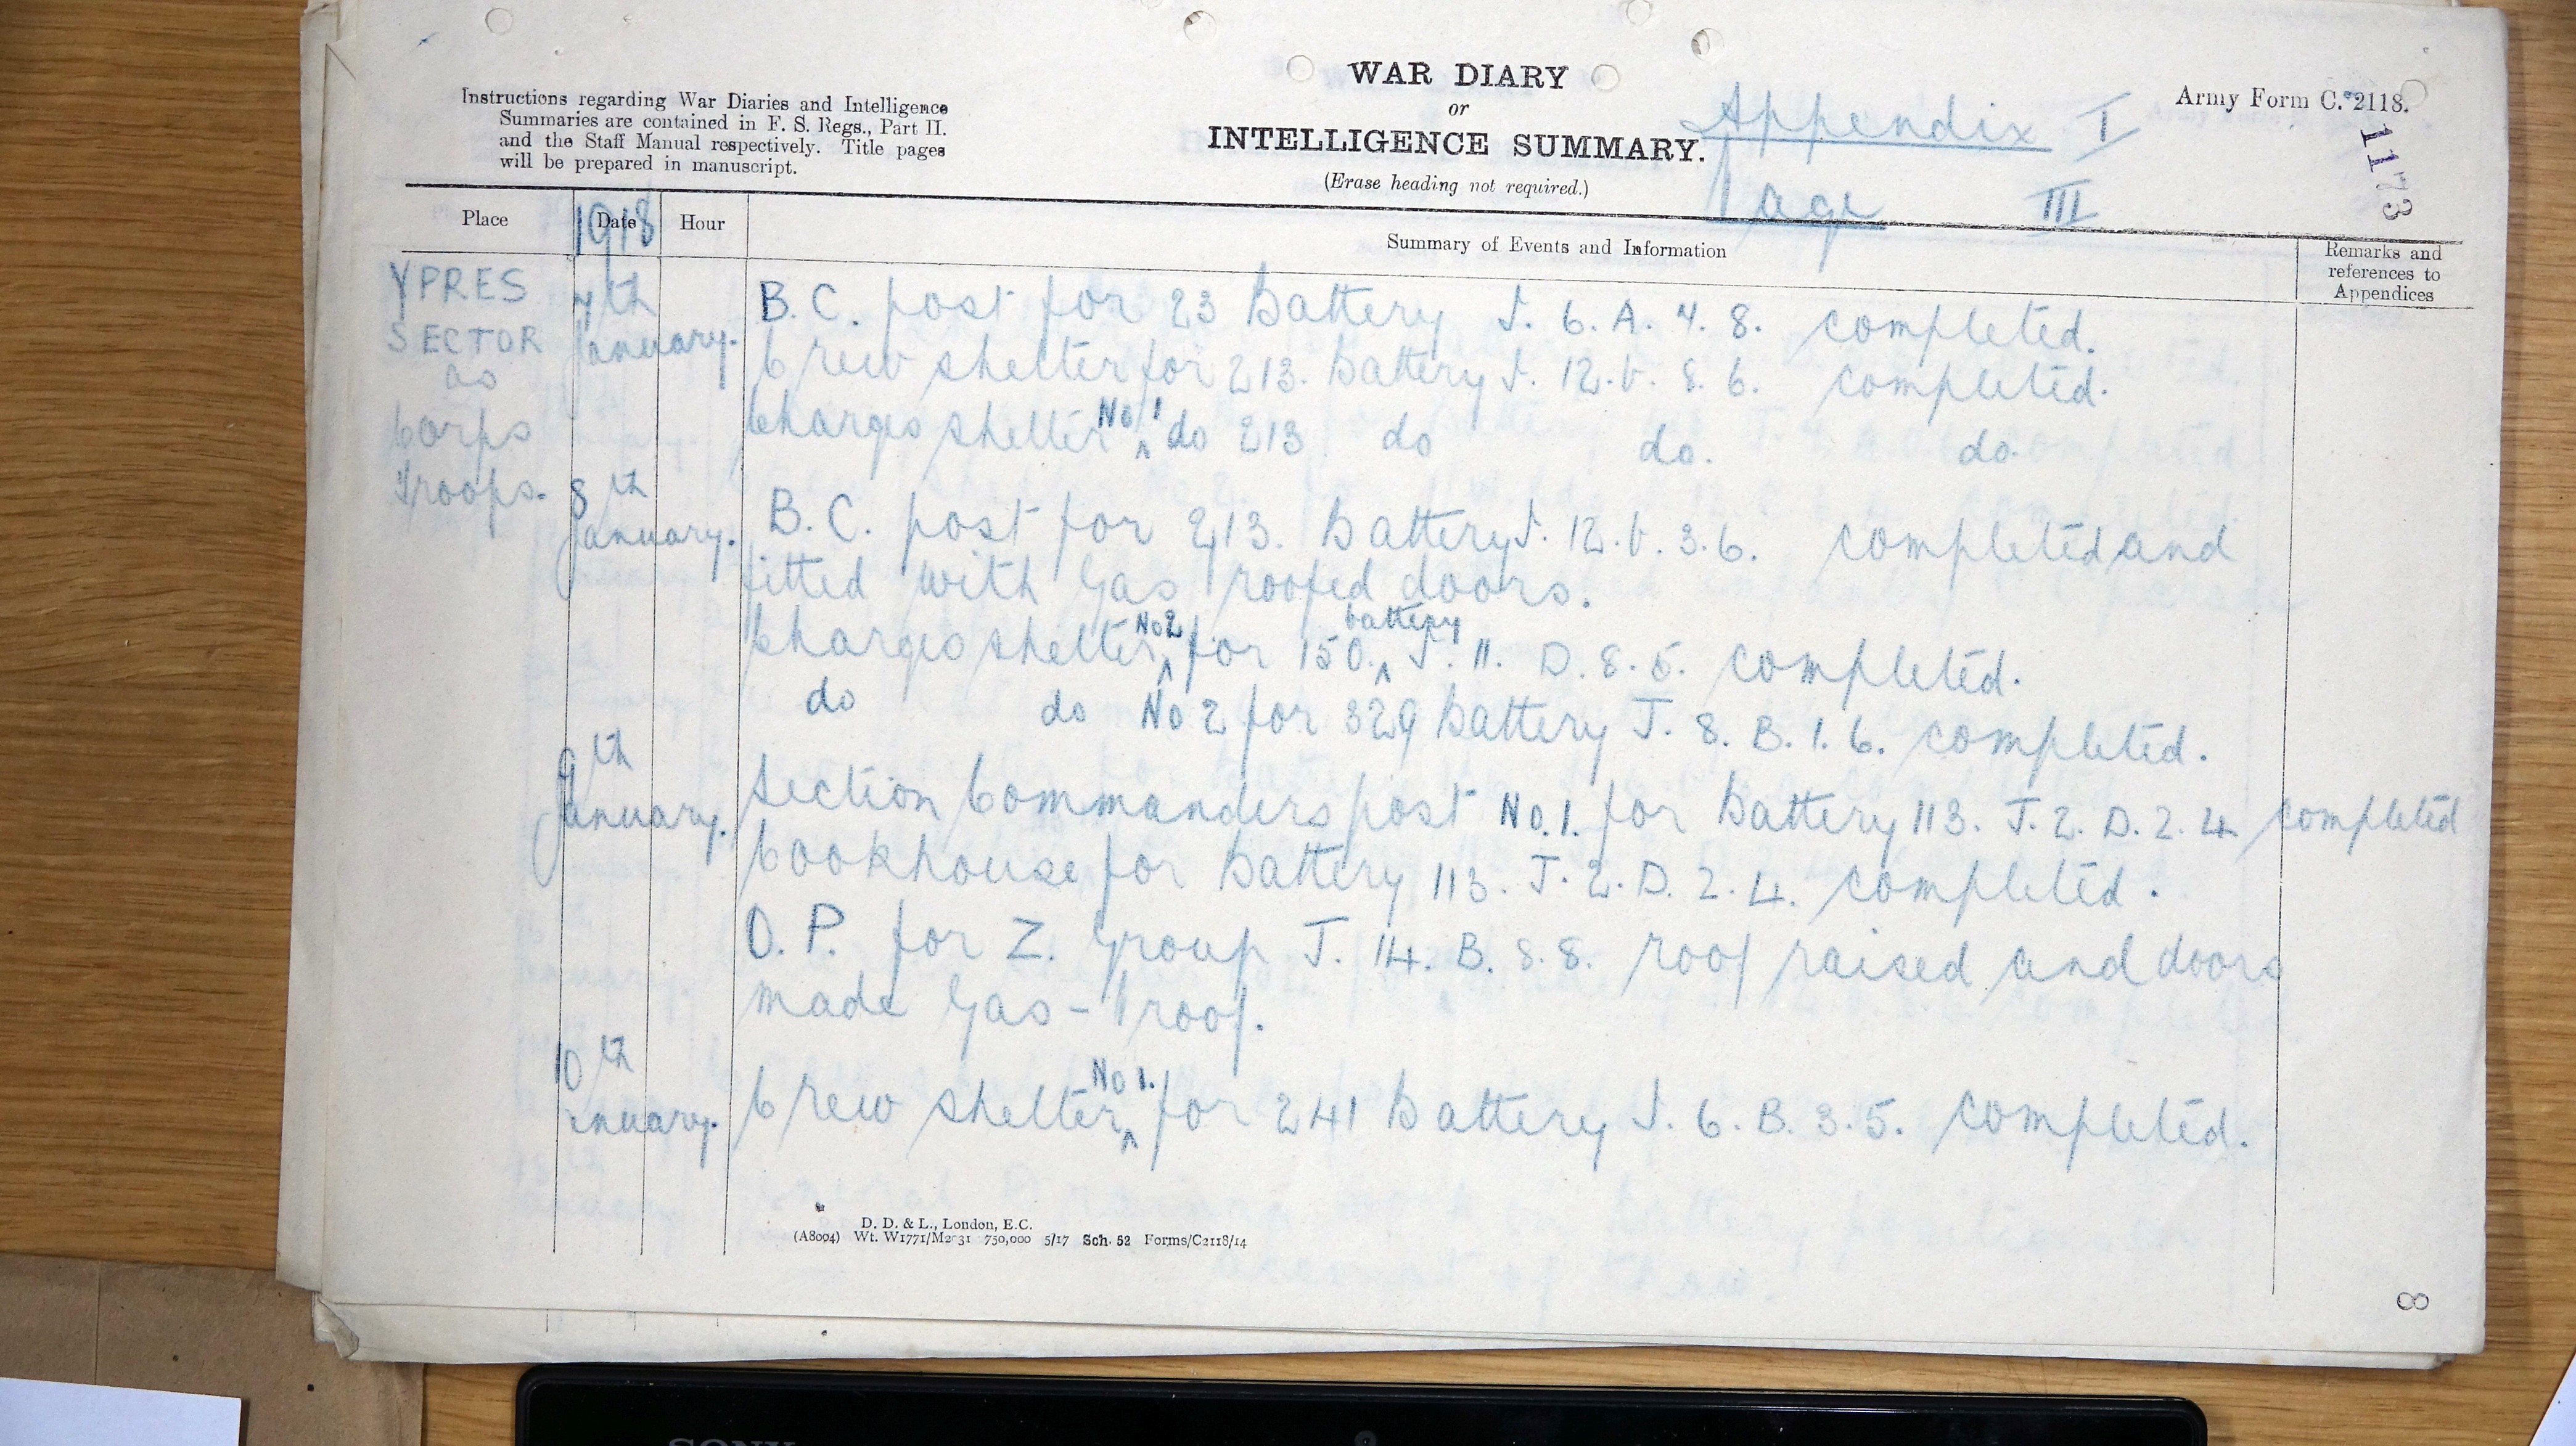 WAR DIARY
or
INTELLIGENCE SUMMARY.
(Erase heading not required.)
Instructions regarding War Diaries and Intelligence
Summaries are contained in F. S. Regs., Part II.
and the Staff Manual respectively. Title pages
will be prepared in manuscript.
Army Form C. 2118.
Appendix I
Page III
1173
Place
Date
1918
Hour
Summary of Events and Information
Remarks and
references to
Appendices
YPRES
SECTOR
as
Corps
Troops.
7th
January.
B.C. post for 23 Battery J. 6. A. 7. 8. completed.
Crew shelter for 213. Battery J. 12. b. 8. 6. completed.
Charges shelter No 1 do 213 do do. do.
8th
January.
B.C. post for 213. Battery J. 12. b. 3. 6. completed and
fitted with Gas roofed doors.
Charges shelter No 2 for 150. battery J. 11. D. 8. 5. completed.
do do No 2 for 329 Battery J. 8. B. 1. 6. completed.
9th
January.
Section Commanders post No. 1. for Battery 113. J. 2. D. 2. 4 completed
Cookhouse for Battery 113. J. 2. D. 2. 4. completed.
O.P. for Z. Group J. 14. B. 8. 8. roof raised and doors
made Gas-Proof.
10th
anuary.
Crew shelter No 1. for 241 Battery J. 6. B. 3. 5. completed.
D. D. & L., London, E.C.
(A8004) Wt. W1771/M2031 750,000 5/17 Sch. 52 Forms/C2118/14
8
SONY